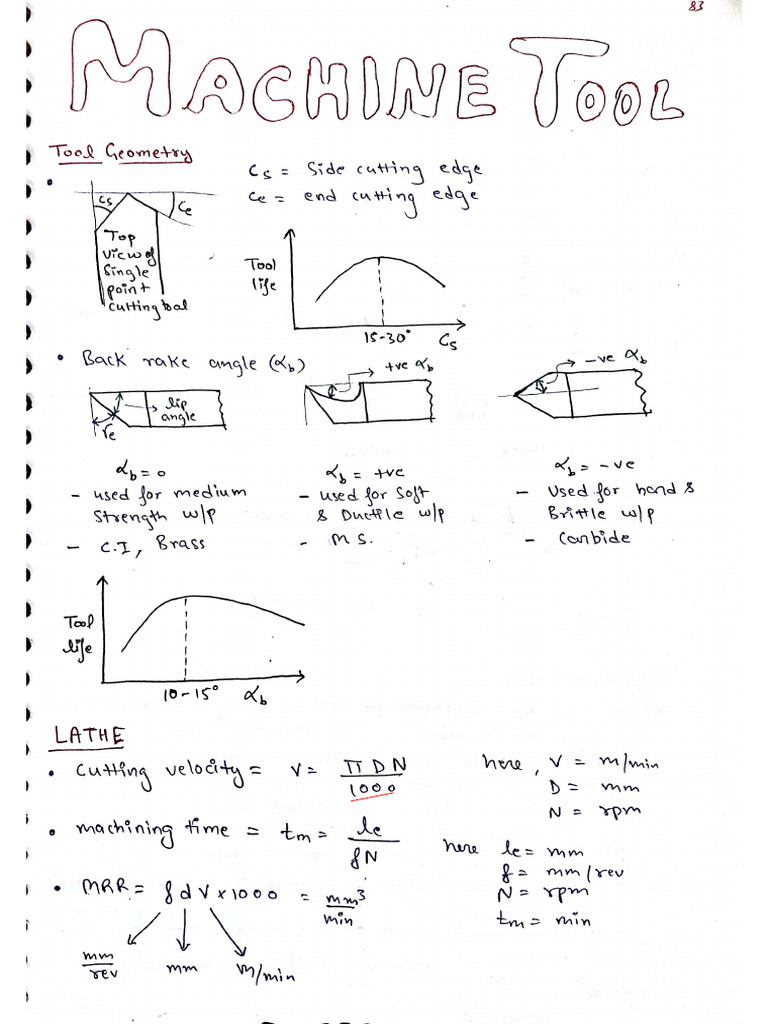 83
MACHINE TOOL
Tool Geometry
Cs = Side cutting edge
Ce = end cutting edge
Cs
Ce
Top
view of
Single
point
cutting tool
Tool
life
15-30° Cs
• Back rake angle (αb)
+ve αb
-ve αb
lip
angle
re
αb = 0
- used for medium
Strength w/p
- C.I, Brass
αb = +ve
- used for Soft
& Ductile w/p
- M S.
αb = -ve
- Used for hard &
Brittle w/p
- Carbide
Tool
life
10-15° αb
LATHE
• Cutting velocity = V = π D N / 1000
here, V = m/min
D = mm
N = rpm
• machining time = tm = le / fN
here le = mm
f = mm/rev
N = rpm
tm = min
• MRR = f d V × 1000 = mm³ / min
mm / rev mm m/min